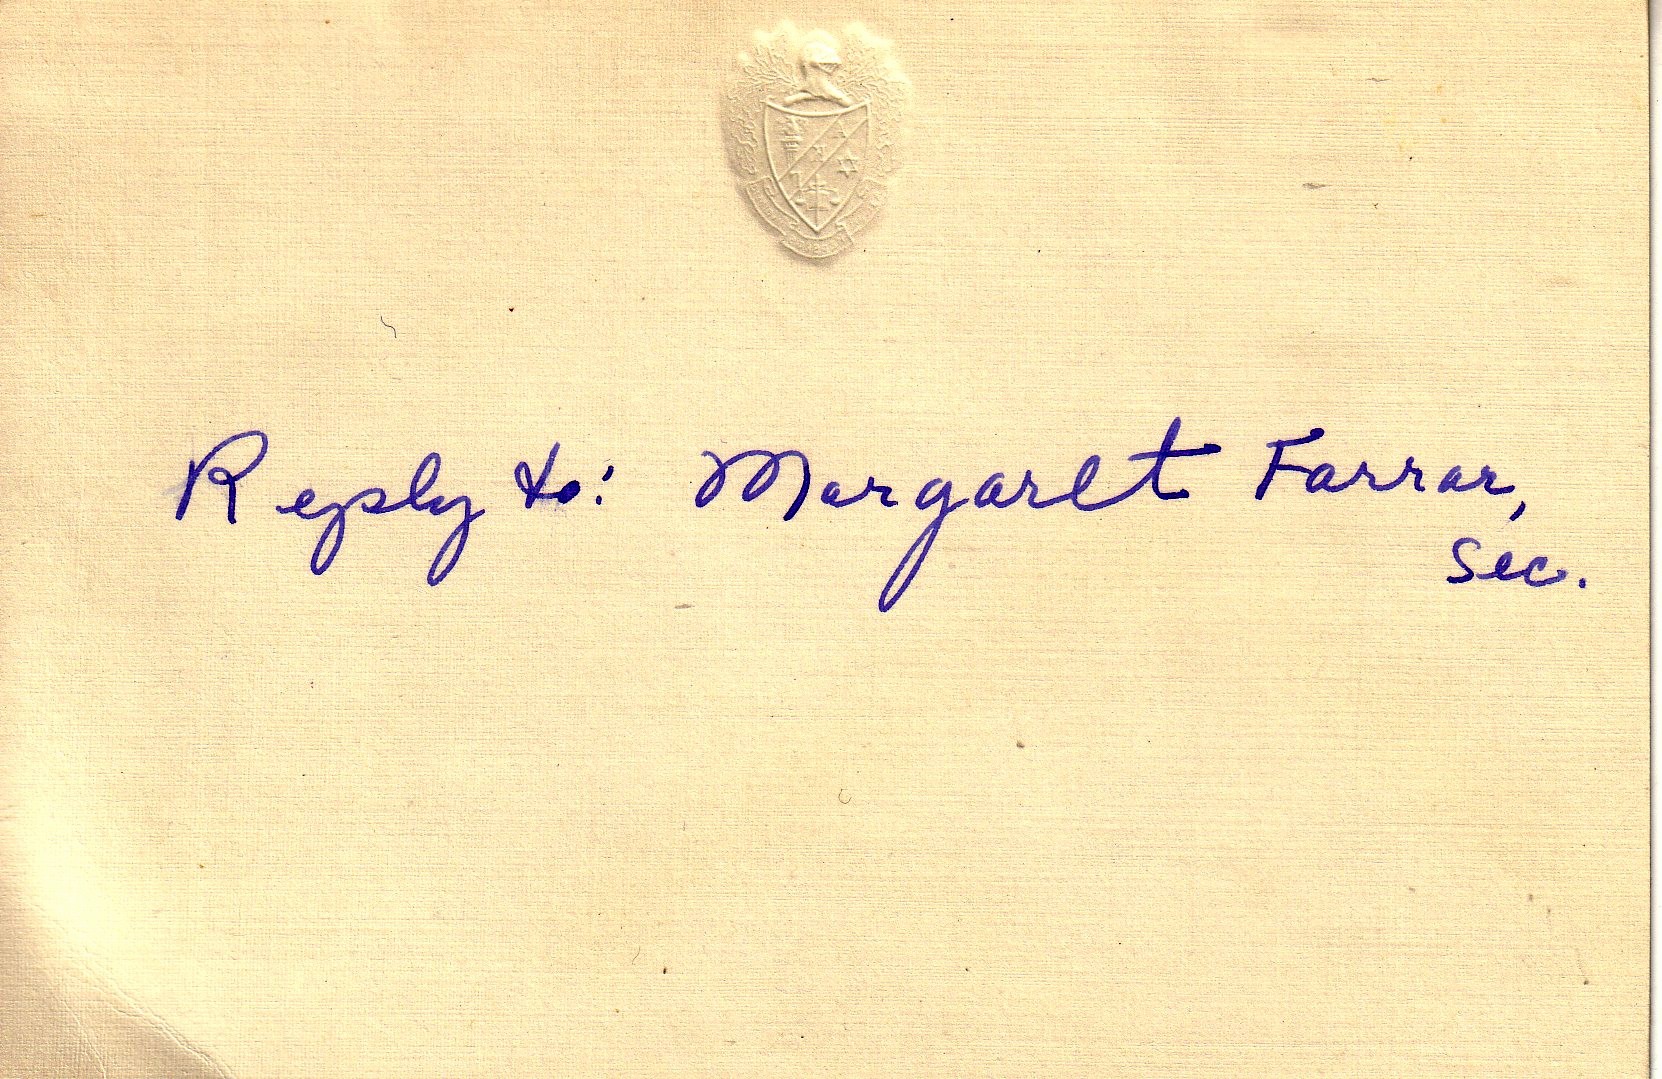 Reply to: Margaret Farrar,
Sec.